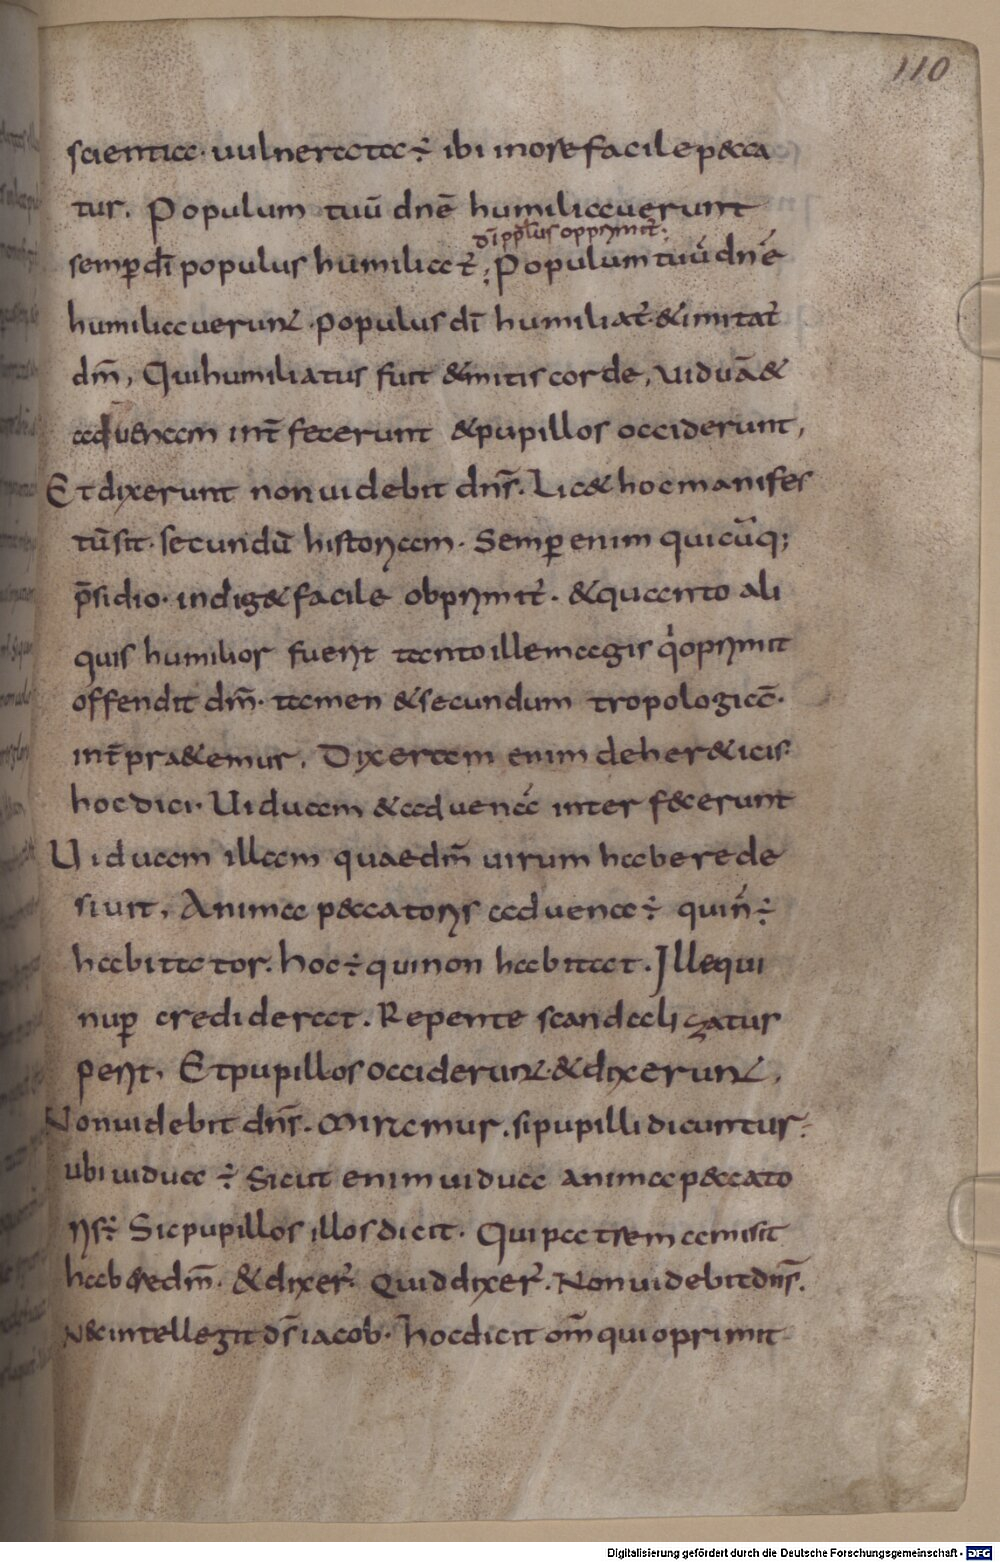 110
scientia· uulnerata ÷ ibi in ore facile p&cca
tur. Populum tuū dnē humiliauerunt
dī pplus opprimit̄;
semp dī populus humiliat̄; Populum tuū dnē
humiliauerunt· populus dī humiliat̄· & imitat̄
dm̄, Qui humiliatus fuit & mitis corde, uiduā &
aduenam int̄ fecerunt & pupillos occiderunt,
Et dixerunt non uidebit dns̄. Lic& hoc manifes
tū sit· secundū historiam· Semp enim quicūq;
p̄sidio· indig& facile obprimit̄· & quanto ali
quis humilior fuerit tanto ille magis q̇ oprimit
offendit dm̄· tamen & secundum tropologiā·
int̄pra&emur. Dixeram enim de her&icis
hoc dici· Uiduam & aduenā inter fecerunt
Uiduam illam quae dm̄ uirum habere de
siuit, Anima peccatoris aduena ÷ qui n̄ ÷
habitator. hoc ÷ qui non habitat. Ille qui
nup crediderat. Repente scandalizatus
perit, Et pupillos occiderunt & dixerunt,
Non uidebit dns̄. Miremur. si pupilli dicuntur
ubi uidua ÷ Sicut enim uidua anima p&ccato
ris ÷ Sic pupillos illos dicit· Qui patrem amisit
hab&re dm̄· & dixer̄· Quid dixer̄· Non uidebit dns̄.
N& intelleg̣it ds̄ iacob· hoc dicit om̄ qui oprimit
Digitalisierung gefördert durch die Deutsche Forschungsgemeinschaft - DFG